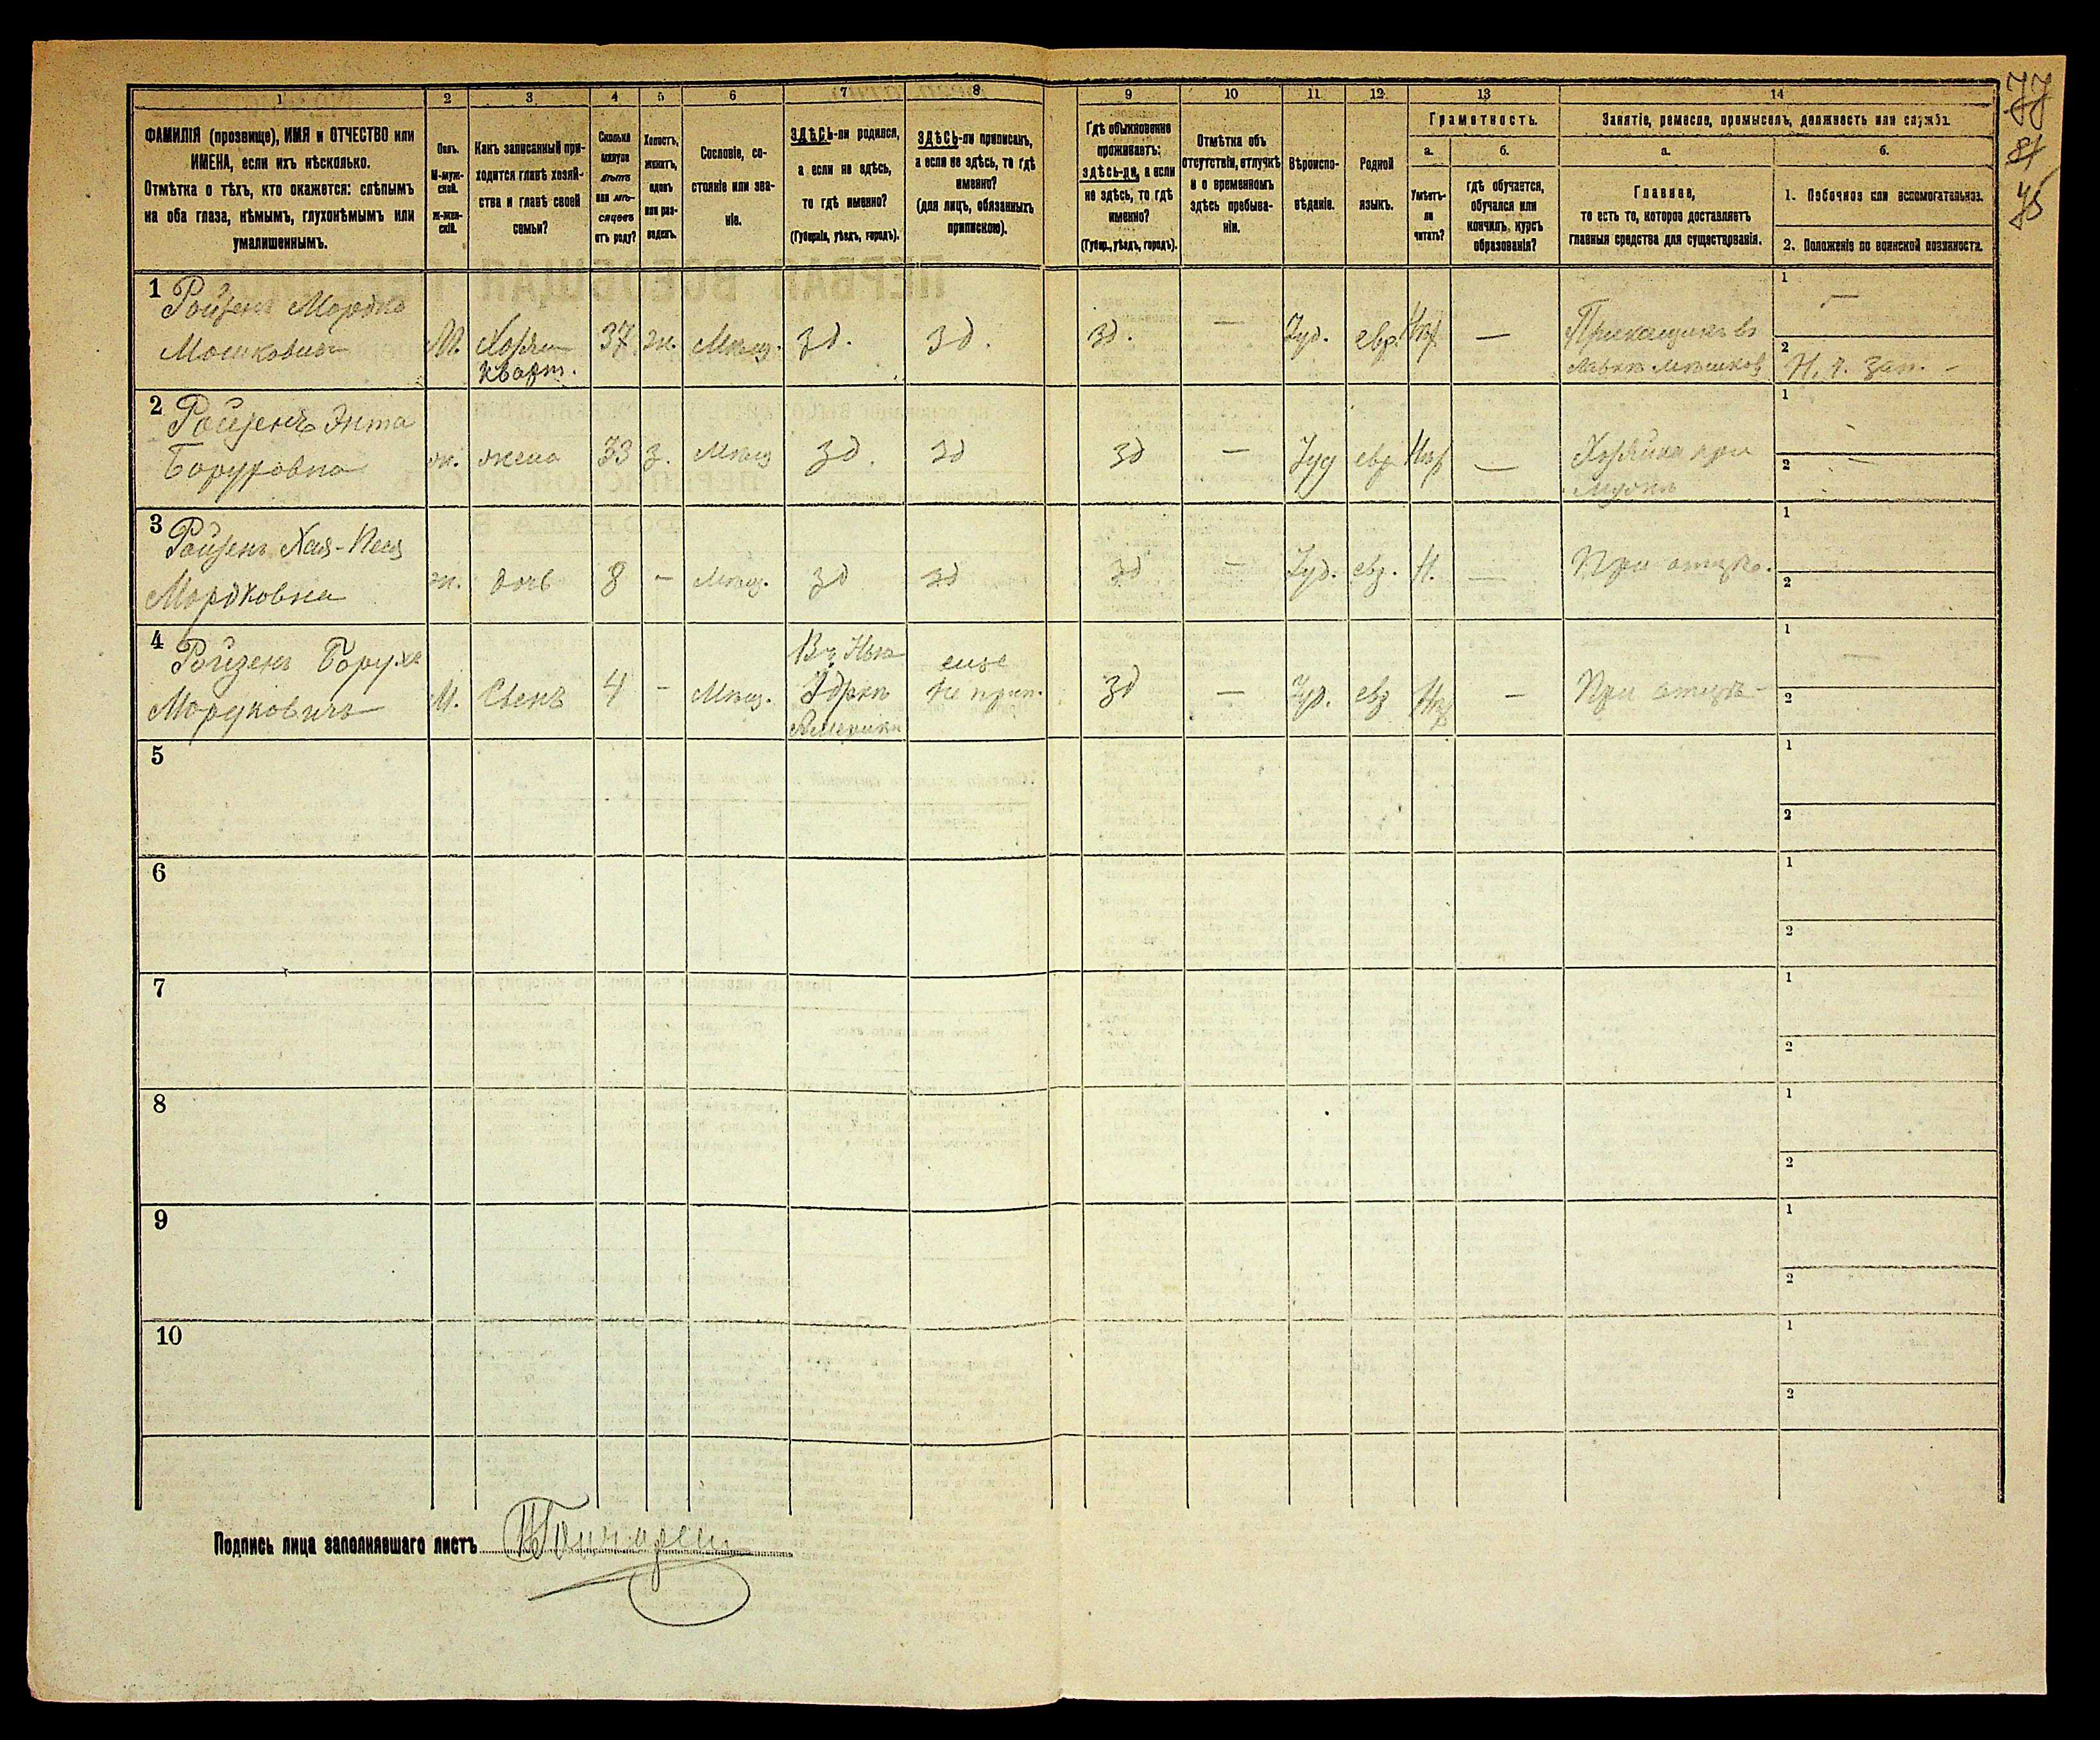 1 2 3 4 5 6 7 8 9 10 11 12 13 14
ФАМИЛІЯ (прозвище), ИМЯ и ОТЧЕСТВО или
ИМЕНА, если ихъ нѣсколько.
Отмѣтка о тѣхъ, кто окажется: слѣпымъ
на оба глаза, нѣмымъ, глухонѣмымъ или
умалишеннымъ.
Полъ.
М-муж-
ской.
ж-жен-
скій.
Какъ записанный при-
ходится главѣ хозяй-
ства и главѣ своей
семьи?
Сколько
минуло
лѣтъ
или мѣ-
сяцевъ
отъ роду?
Холостъ,
женатъ,
вдовъ
или раз-
веденъ.
Сословіе, со-
стояніе или зва-
ніе.
ЗДѢСЬ-ли родился,
а если не здѣсь,
то гдѣ именно?
(Губернія, уѣздъ, городъ).
ЗДѢСЬ-ли приписанъ,
а если не здѣсь, то гдѣ
именно?
(для лицъ, обязанныхъ
припискою).
Гдѣ обыкновенно
проживаетъ:
здѣсь-ли, а если
не здѣсь, то гдѣ
именно?
(Губер., уѣздъ, городъ).
Отмѣтка объ
отсутствіи, отлучкѣ
и о временномъ
здѣсь пребыва-
ніи.
Вѣроиспо-
вѣданіе.
Родной
языкъ.
Грамотность.
а.
Умѣетъ-
ли
читать?
б.
гдѣ обучается,
обучался или
кончилъ курсъ
образованія?
Занятіе, ремесло, промыселъ, должность или служба.
а.
Главное,
то есть то, которое доставляетъ
главныя средства для существованія.
б.
1. Побочное или вспомогательное.
2. Положеніе по воинской повинности.
77
81
45
1 Ройзенъ Мордко
Мошковичъ
М. Хозяин
кварт.
37 ж. Мѣщ. зд. зд. зд. — Іуд. евр. —
Прикащикъ въ
лавкѣ мѣшков
1 —
2 Н. ч. зап. -
2 Ройзенъ Энта
Боруховна
ж. жена 33 з. Мѣщ зд. зд зд — Іуд евр —
Хозяйка при
мужѣ
1
2 —
3 Ройзенъ Хая-Песя
Мордковна
ж. дочь 8 - Мѣщ. зд зд зд — Іуд. евр. Н. —
При отцѣ.
1
2
4 Ройзенъ Борухъ
Мордковичъ
М. Сынъ 4 - Мѣщ.
Въ Нью
Іоркѣ
Америка
еще
не прип.
зд — Іуд. евр —
При отцѣ -
1 —
2
5 1
2
6 1
2
7 1
2
8 1
2
9 1
2
10 1
2
Подпись лица заполнявшаго листъ